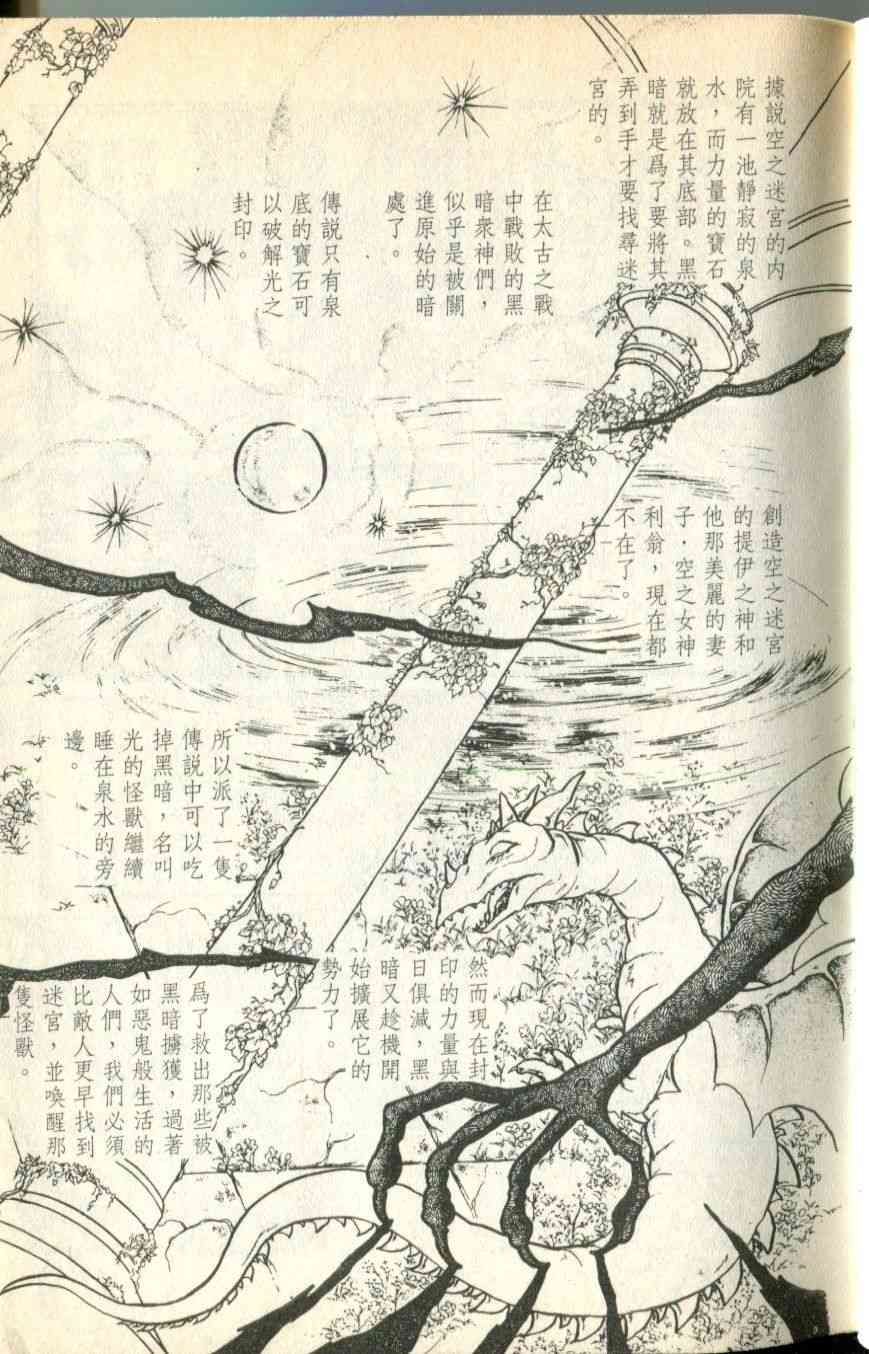 據說空之迷宮的內
院有一池靜寂的泉
水，而力量的寶石
就放在其底部。黑
暗就是爲了要將其
弄到手才要找尋迷
宮的。
在太古之戰
中戰敗的黑
暗衆神們，
似乎是被關
進原始的暗
處了。
傳說只有泉
底的寶石可
以破解光之
封印。
創造空之迷宮
的提伊之神和
他那美麗的妻
子·空之女神
利翁，現在都
不在了。
所以派了一隻
傳說中可以吃
掉黑暗，名叫
光的怪獸繼續
睡在泉水的旁
邊。
然而現在封
印的力量與
日俱減，黑
暗又趁機開
始擴展它的
勢力了。
爲了救出那些被
黑暗擄獲，過著
如惡鬼般生活的
人們，我們必須
比敵人更早找到
迷宮，並喚醒那
隻怪獸。